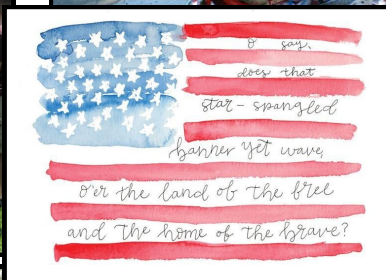 O say,
does that
star-spangled
banner yet wave,
o'er the land of the free
and the home of the brave?